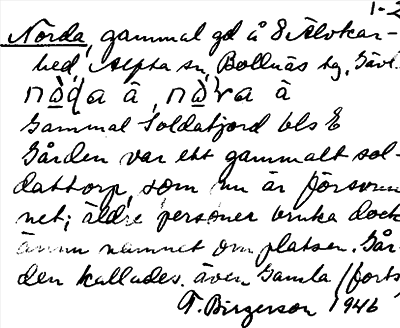 1-2
Norda, gammal gd å S Älvkar-
hed, Alfta sn, Bollnäs tg, Gävl.
Gammal Soldatjord bls E
Gården var ett gammalt sol-
dattorp, som nu är försvun
net; äldre personer bruka dock
ännu namnet om platsen. Går-
den kallades även Gamla (forts
T. Birgerson 1946